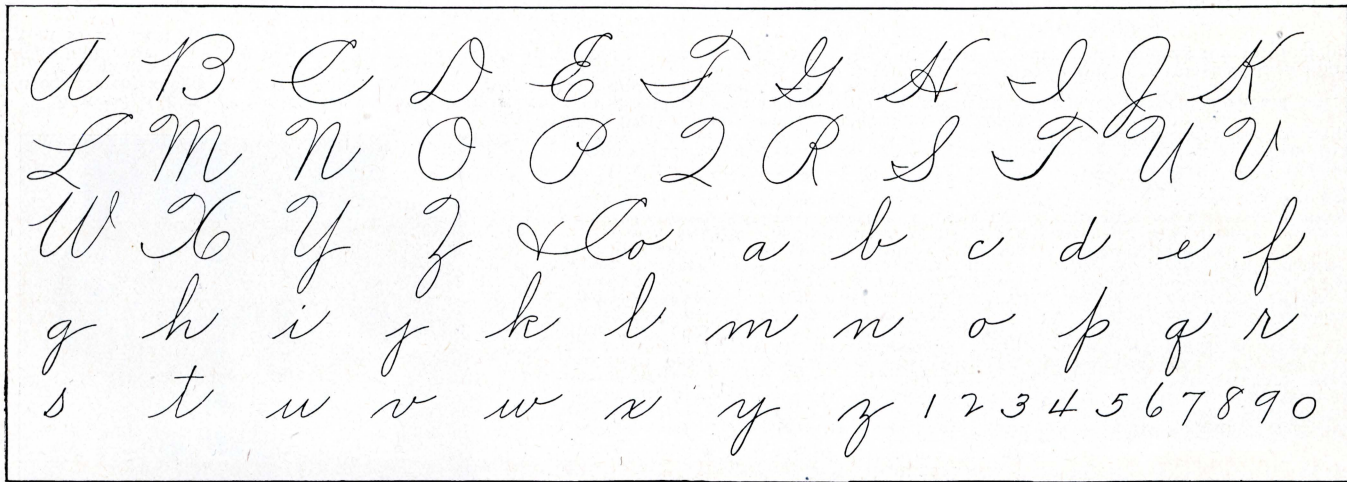 A B C D E F G H I J K
L M N O P Q R S T U V
W X Y Z & Co a b c d e f
g h i j k l m n o p q r
s t u v w x y z 1 2 3 4 5 6 7 8 9 0